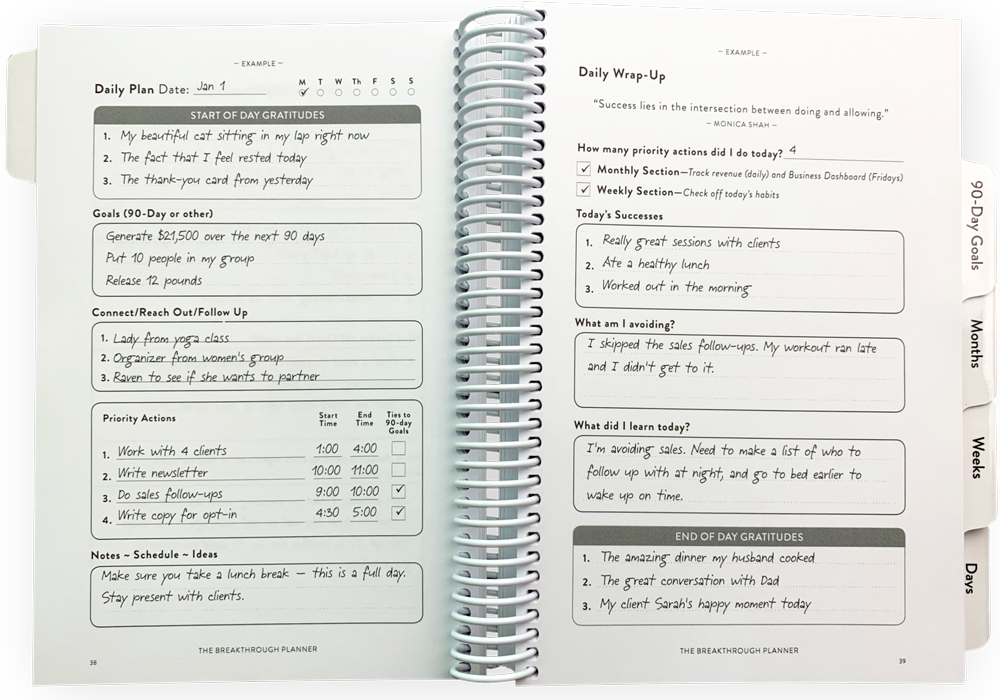 – EXAMPLE –
Daily Plan Date: Jan 1
M T W Th F S S
START OF DAY GRATITUDES
1. My beautiful cat sitting in my lap right now
2. The fact that I feel rested today
3. The thank-you card from yesterday
Goals (90-Day or other)
Generate $21,500 over the next 90 days
Put 10 people in my group
Release 12 pounds
Connect/Reach Out/Follow Up
1. Lady from yoga class
2. Organizer from women's group
3. Raven to see if she wants to partner
Priority Actions Start Time End Time Ties to 90-day Goals
1. Work with 4 clients 1:00 4:00
2. Write newsletter 10:00 11:00
3. Do sales follow-ups 9:00 10:00 ✓
4. Write copy for opt-in 4:30 5:00 ✓
Notes ~ Schedule ~ Ideas
Make sure you take a lunch break – this is a full day.
Stay present with clients.
THE BREAKTHROUGH PLANNER
38
– EXAMPLE –
Daily Wrap-Up
"Success lies in the intersection between doing and allowing."
– MONICA SHAH –
How many priority actions did I do today? 4
✓ Monthly Section—Track revenue (daily) and Business Dashboard (Fridays)
✓ Weekly Section—Check off today's habits
Today's Successes
1. Really great sessions with clients
2. Ate a healthy lunch
3. Worked out in the morning
What am I avoiding?
I skipped the sales follow-ups. My workout ran late
and I didn't get to it.
What did I learn today?
I'm avoiding sales. Need to make a list of who to
follow up with at night, and go to bed earlier to
wake up on time.
END OF DAY GRATITUDES
1. The amazing dinner my husband cooked
2. The great conversation with Dad
3. My client Sarah's happy moment today
THE BREAKTHROUGH PLANNER
39
90-Day Goals
Months
Weeks
Days